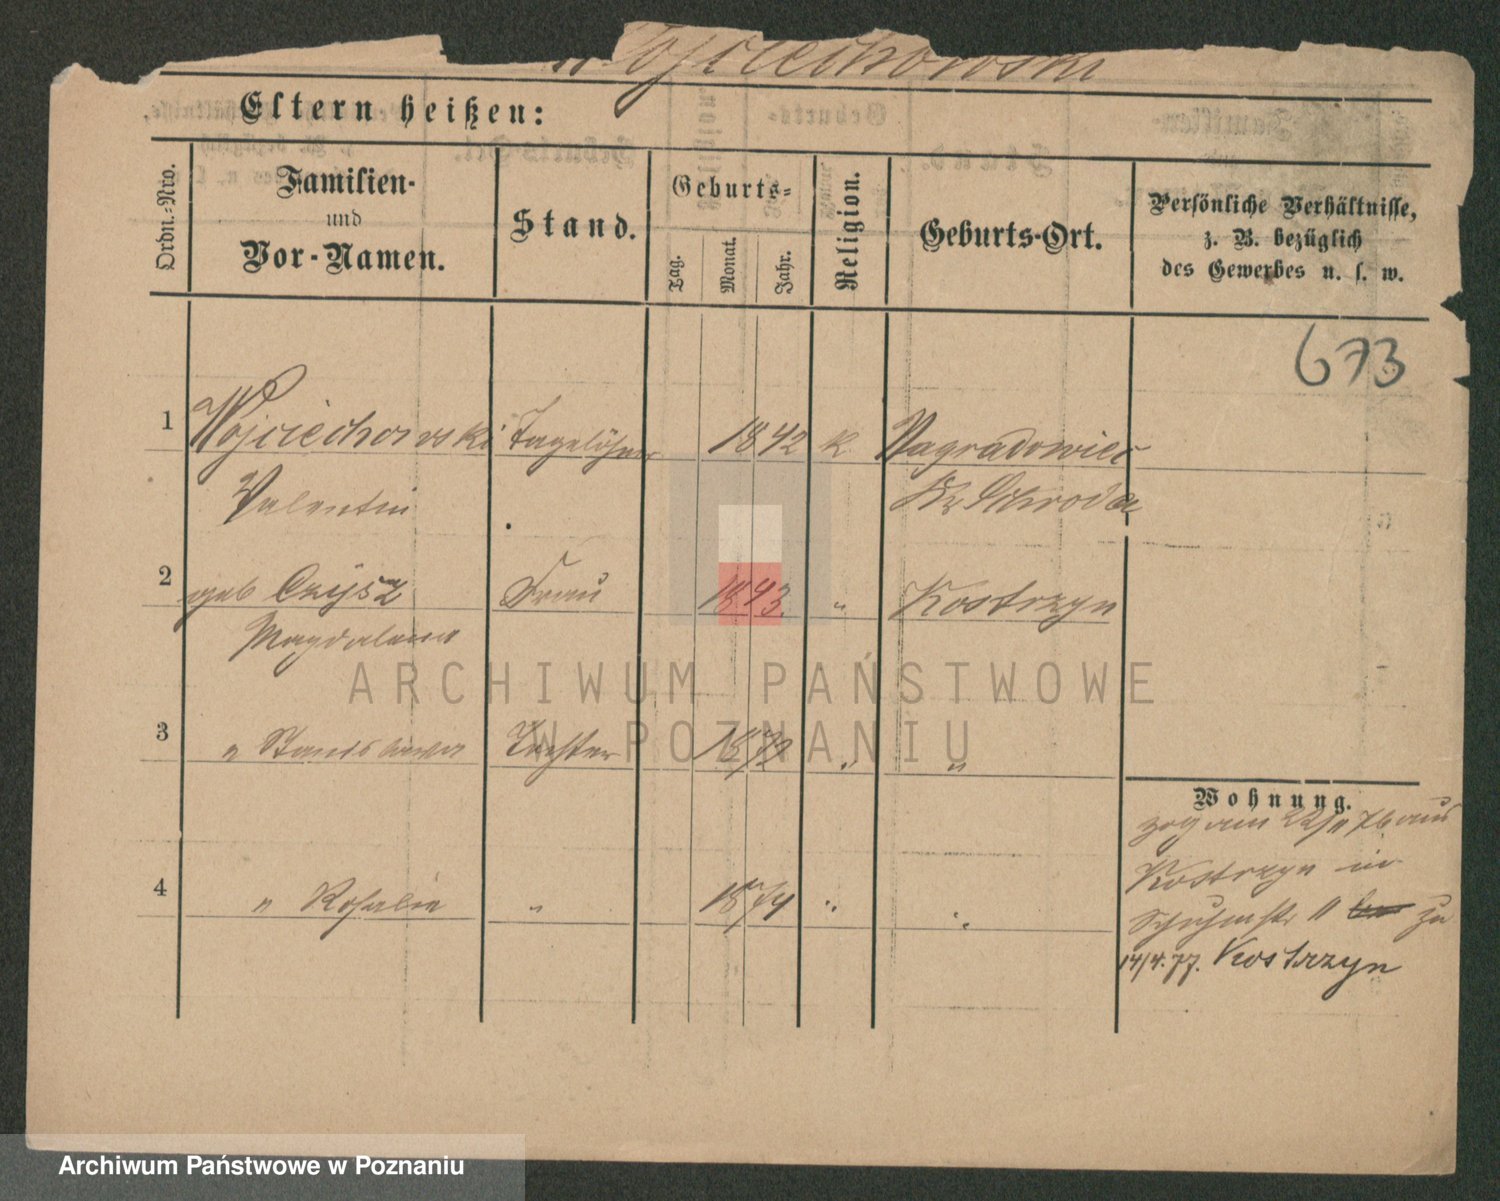 Wojciechowski
Eltern heißen:
Ordn.-Nro.
Familien-
und
Vor-Namen.
Stand.
Geburts-
Tag.
Monat.
Jahr.
Religion.
Geburts-Ort.
Persönliche Verhältnisse,
z. B. bezüglich
des Gewerbes u. s. w.
673
1 Wojciechowski Tagelöhner 1842 k Nagradowice
Valentin Kr Schroda
2 geb Czysz Frau 1843. " Kostrzyn
Magdalena
3 " Stanislawa Tochter 1872 " "
4 " Rosalie " 1874 " "
Wohnung.
zog am 22/11 76 aus
Kostrzyn in
11 zu
14/4. 77. Kostrzyn
ARCHIWUM PAŃSTWOWE
W POZNANIU
Archiwum Państwowe w Poznaniu